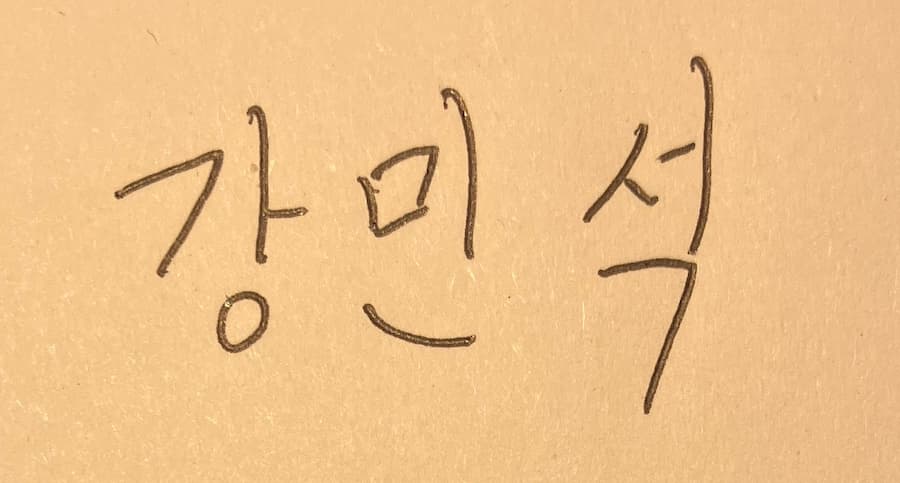 강민석